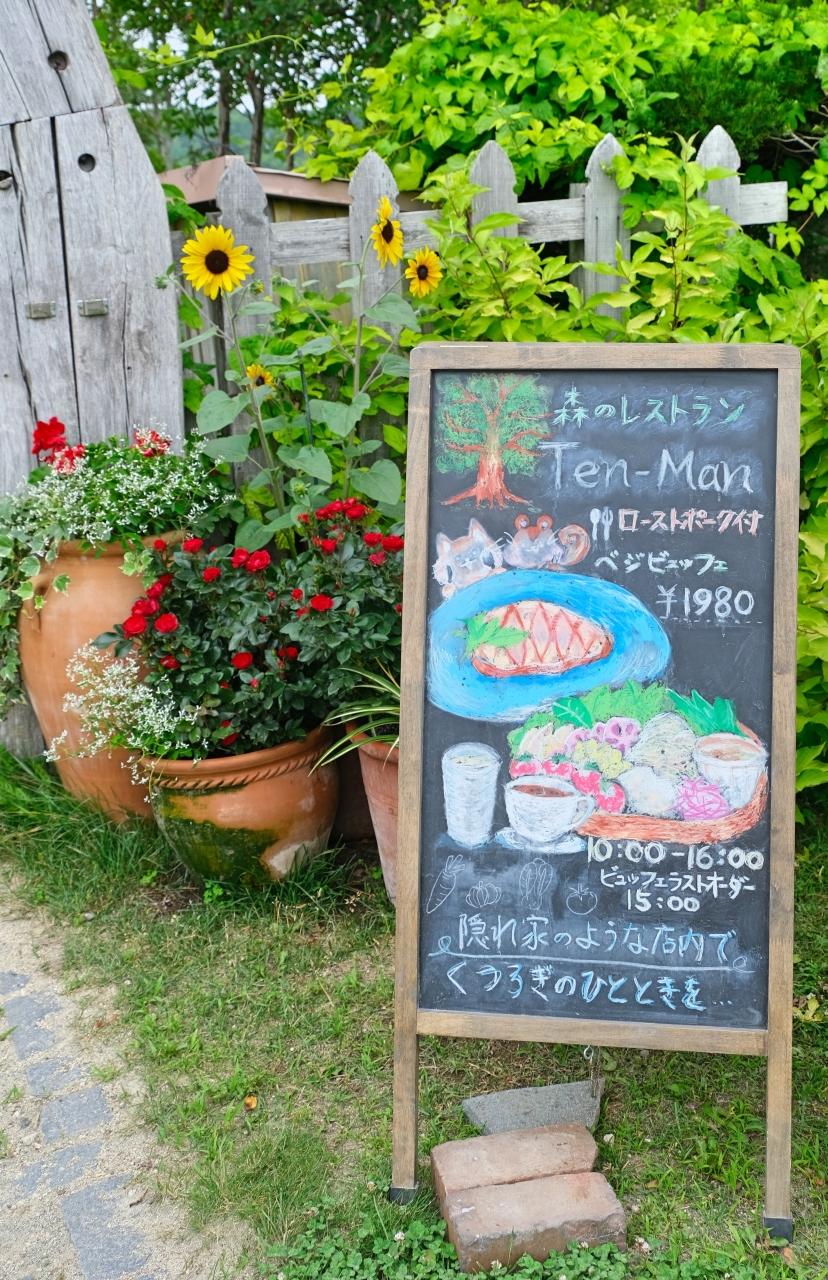 森のレストラン
Ten-Man
ローストポーク付
ベジビュッフェ
¥1980
10:00-16:00
ビュッフェラストオーダー
15:00
隠れ家のような店内で
くつろぎのひとときを…